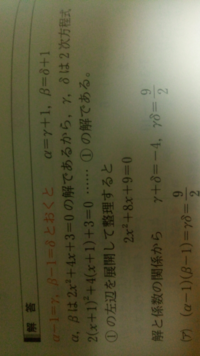 解答
α-1=γ, β-1=δとおくと α=γ+1, β=δ+1
α, βは2x²+4x+3=0の解であるから、γ, δは2次方程式
2(x+1)²+4(x+1)+3=0 …… ① の解である。
①の左辺を展開して整理すると
2x²+8x+9=0
解と係数の関係から γ+δ=-4, γδ=9/2
(ア) (α-1)(β-1)=γδ=9/2